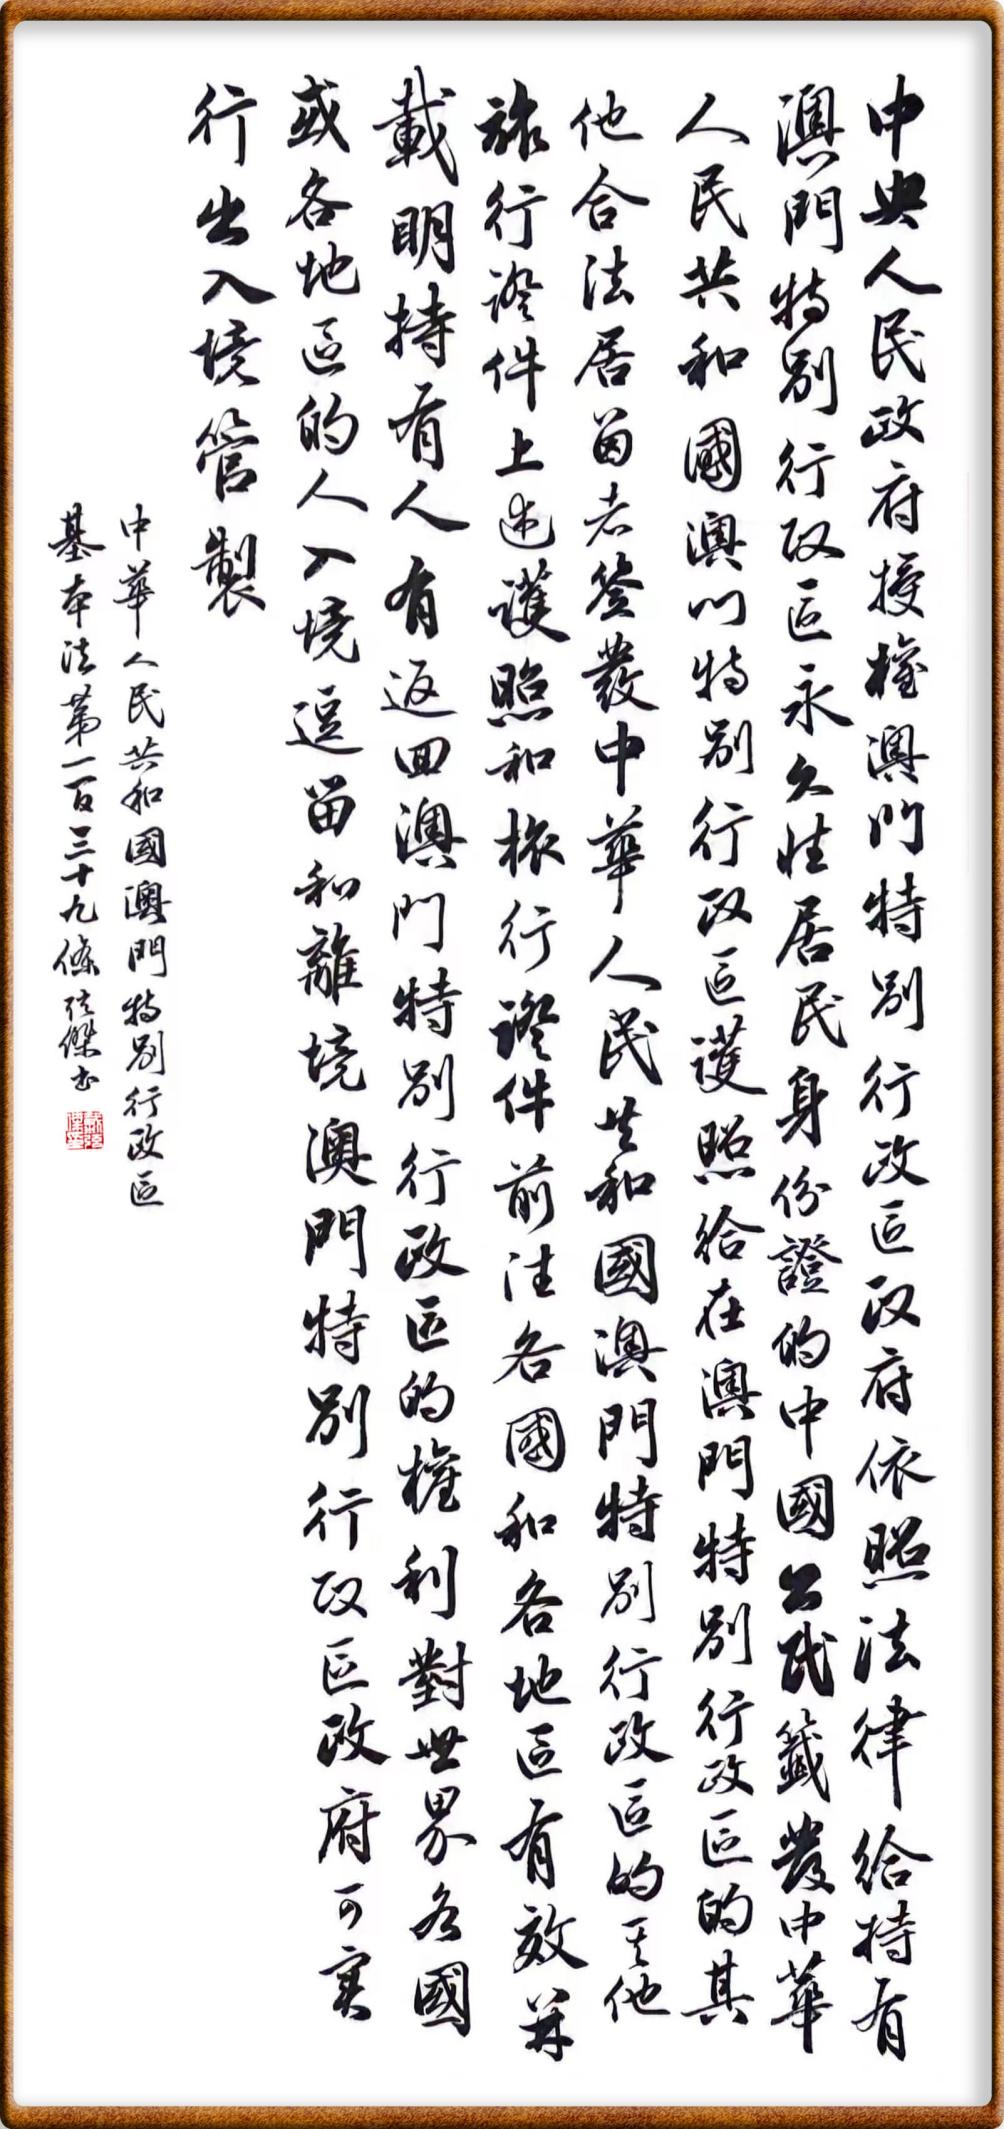 中央人民政府授權澳門特別行政區政府依照法律給持有
澳門特別行政區永久性居民身份證的中國公民籤發中華
人民共和國澳門特別行政區護照給在澳門特別行政區的其
他合法居留者簽發中華人民共和國澳門特別行政區的其他
旅行證件上述護照和旅行證件前往各國和各地區有效并
載明持有人有返回澳門特別行政區的權利對世界各國
或各地區的人入境逗留和離境澳門特別行政區政府可實
行出入境管製
中華人民共和國澳門特別行政區
基本法第一百三十九條傑书